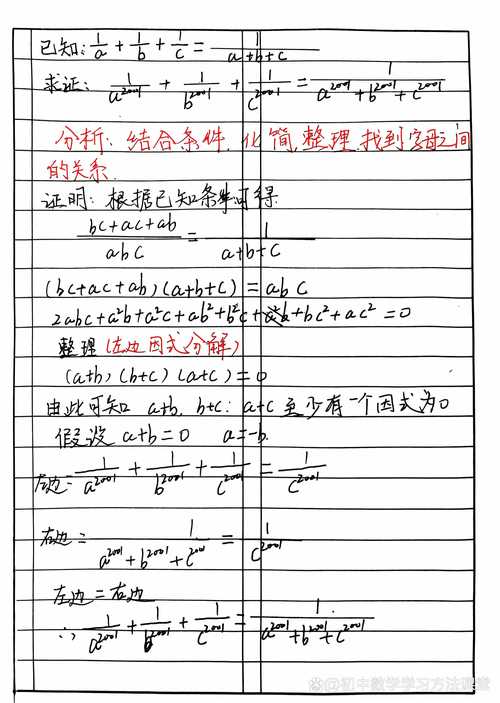 已知: 1/a + 1/b + 1/c = 1/(a+b+c)
求证: 1/a²⁰⁰¹ + 1/b²⁰⁰¹ + 1/c²⁰⁰¹ = 1/(a²⁰⁰¹+b²⁰⁰¹+c²⁰⁰¹)
分析: 结合条件,化简,整理,找到字母之间
的关系.
证明: 根据已知条件可得
(bc+ac+ab)/(abc) = 1/(a+b+c)
(bc+ac+ab)(a+b+c) = abc
2abc+a²b+a²c+ab²+b²c+bc²+ac² = 0
整理(左边因式分解)
(a+b)(b+c)(a+c) = 0
由此可知 a+b, b+c, a+c 至少有一个因式为0
假设 a+b=0 a=-b.
左边= 1/a²⁰⁰¹ + 1/b²⁰⁰¹ + 1/c²⁰⁰¹ = 1/c²⁰⁰¹
右边= 1/(a²⁰⁰¹+b²⁰⁰¹+c²⁰⁰¹) = 1/c²⁰⁰¹
左边=右边
∴ 1/a²⁰⁰¹ + 1/b²⁰⁰¹ + 1/c²⁰⁰¹ = 1/(a²⁰⁰¹+b²⁰⁰¹+c²⁰⁰¹)
@初中数学学习方法课堂